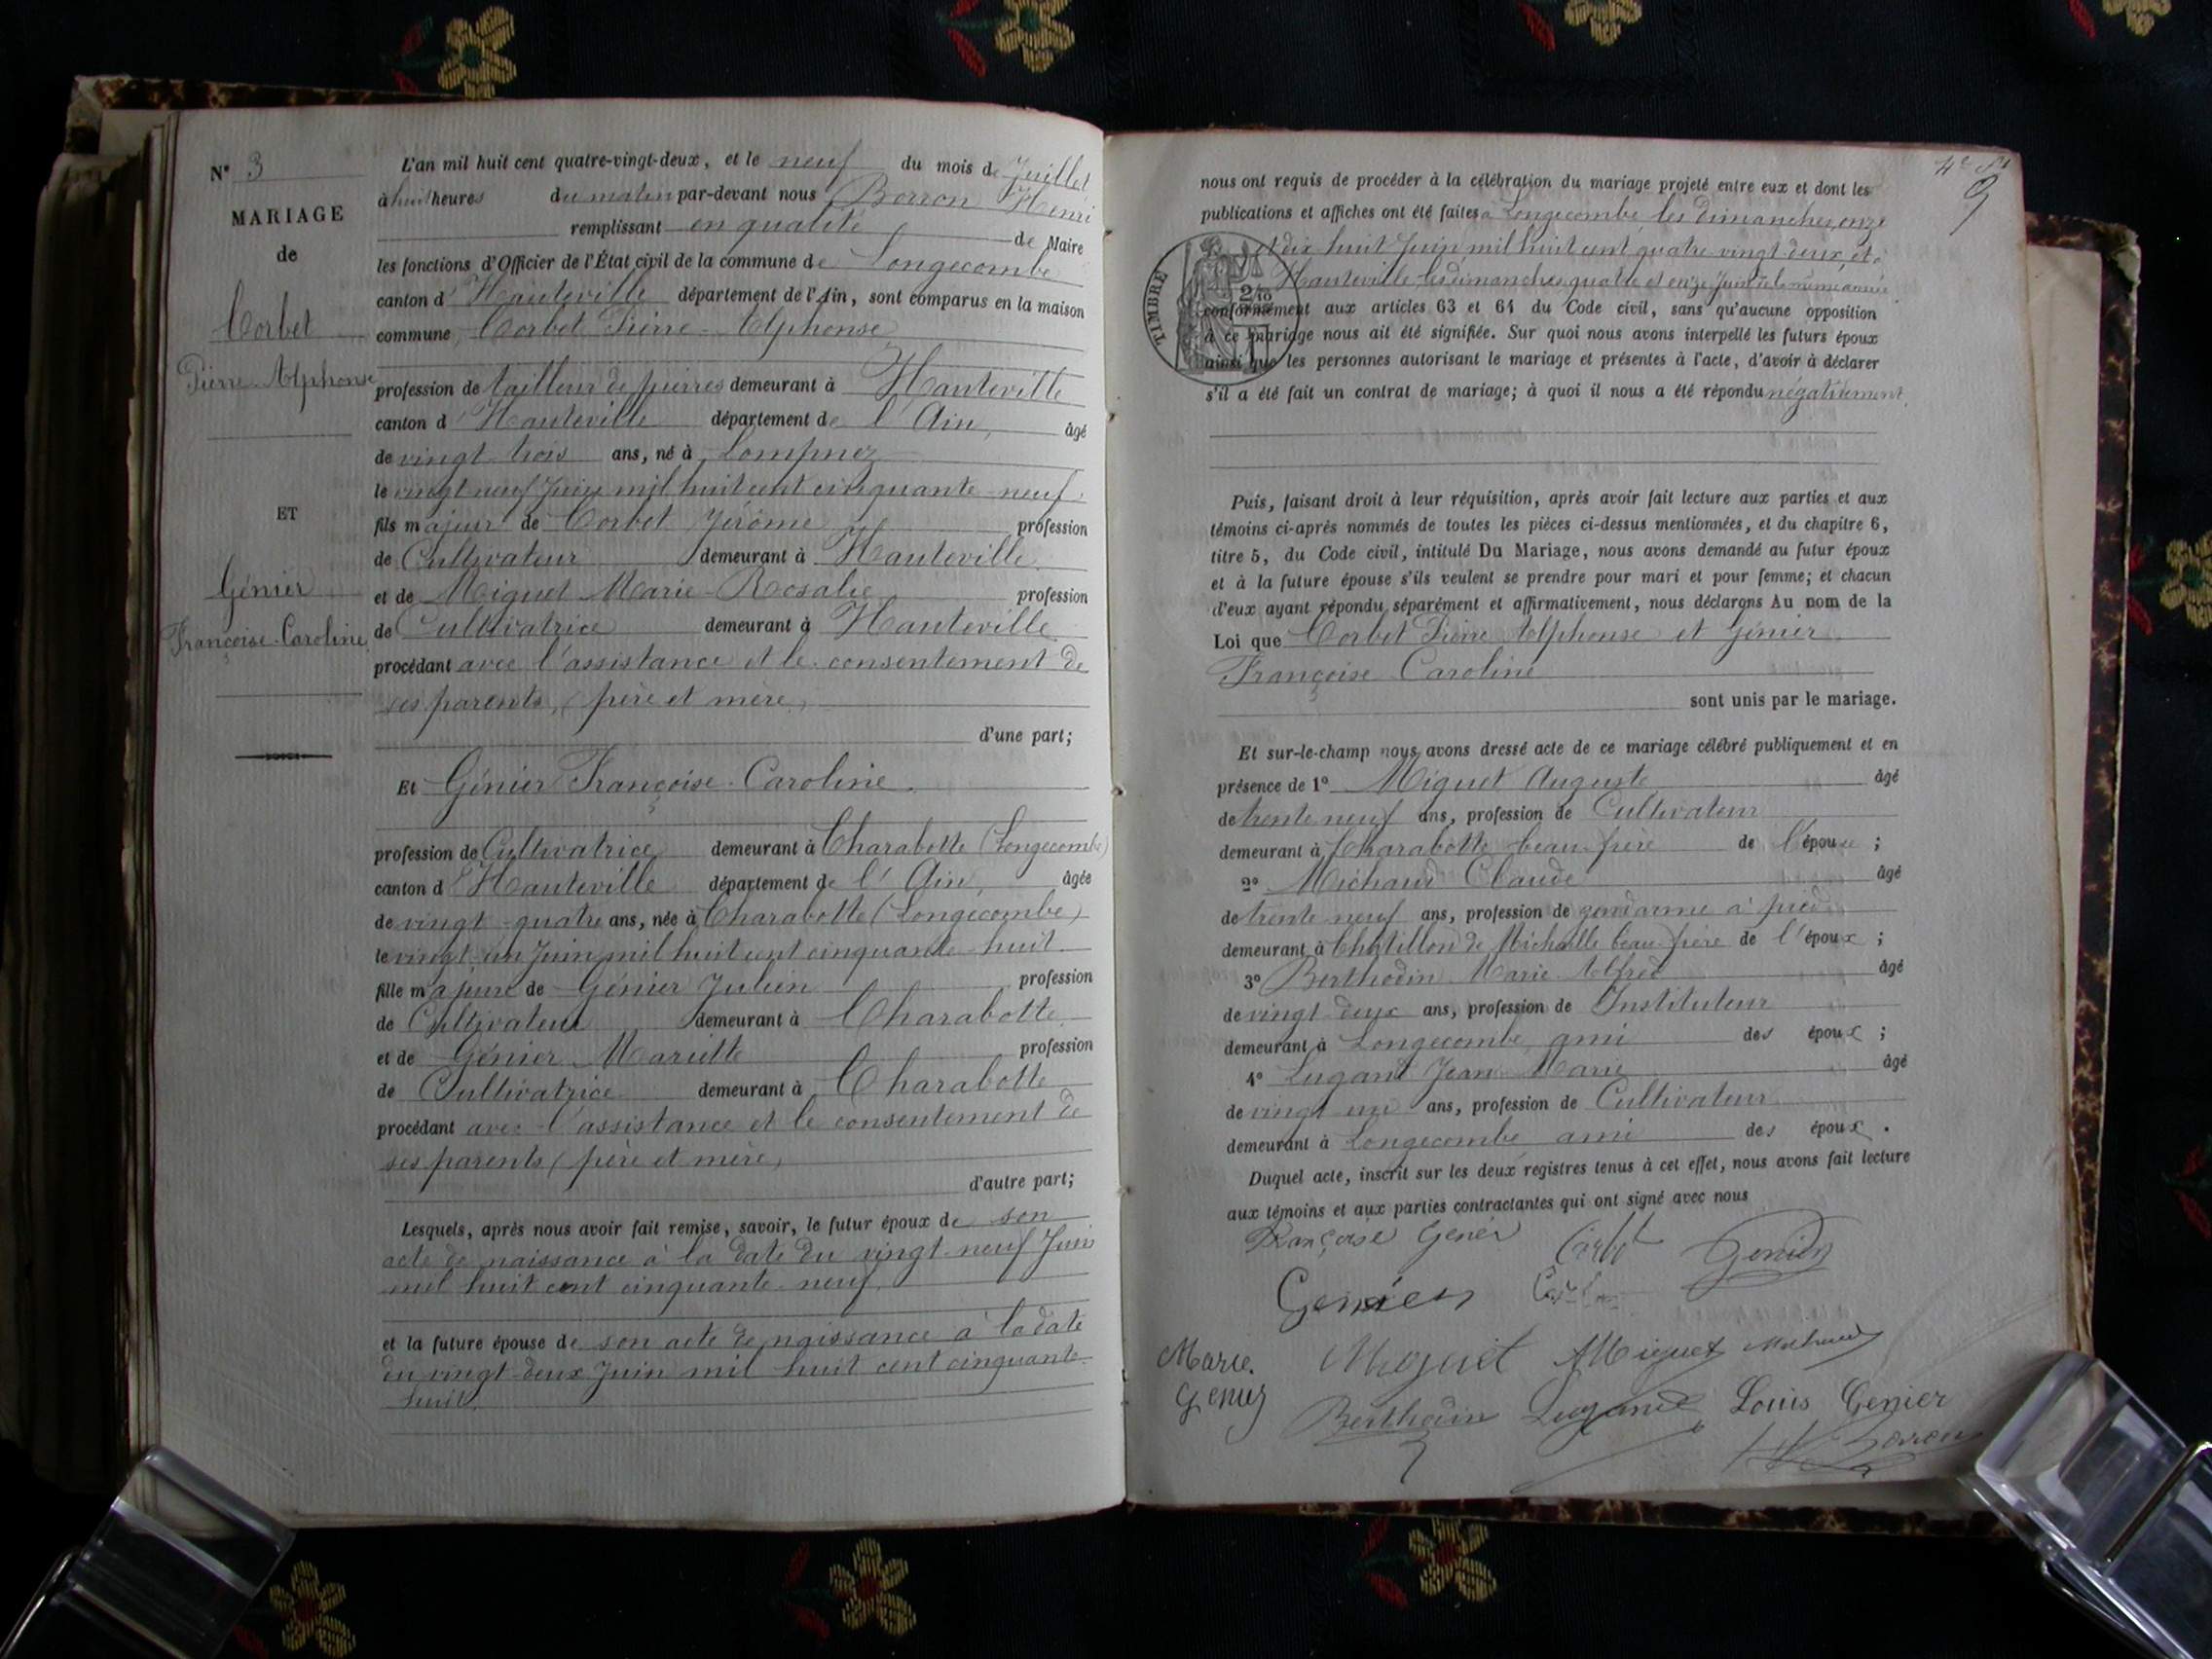 N° 3
MARIAGE
de
Corbet
Pierre-Alphonse
ET
Génier
Françoise-Caroline
L'an mil huit cent quatre-vingt-deux, et le neuf du mois de Juillet
à huit heures du matin par-devant nous Borron Henri
remplissant en qualité de Maire
les fonctions d'Officier de l'État civil de la commune de Longecombe
canton d'Hauteville département de l'Ain, sont comparus en la maison
commune, Corbet Pierre-Alphonse
profession de tailleur de pierres demeurant à Hauteville
canton d'Hauteville département de l'Ain, âgé
de vingt trois ans, né à Lompnez
le vingt neuf Juin mil huit cent cinquante-neuf,
fils majeur de Corbet Jérôme profession
de Cultivateur demeurant à Hauteville
et de Miguet Marie-Rosalie profession
de Cultivatrice demeurant à Hauteville
procédant avec l'assistance et le consentement de
ses parents, (père et mère,
d'une part;
Et Génier Françoise-Caroline.
profession de Cultivatrice demeurant à Charabotte (Longecombe)
canton d'Hauteville département de l'Ain, âgée
de vingt-quatre ans, née à Charabotte (Longecombe)
le vingt-un Juin mil huit cent cinquante-huit
fille majeure de Génier Julien profession
de Cultivateur demeurant à Charabotte
et de Génier Mariette profession
de Cultivatrice demeurant à Charabotte
procédant avec l'assistance et le consentement de
ses parents (père et mère,
d'autre part;
Lesquels, après nous avoir fait remise, savoir, le futur époux de son
acte de naissance à la date du vingt-neuf Juin
mil huit cent cinquante-neuf,
et la future épouse de son acte de naissance à la date
du vingt-deux Juin mil huit cent cinquante-
huit.
9
nous ont requis de procéder à la célébration du mariage projeté entre eux et dont les
publications et affiches ont été faites à Longecombe, les dimanches onze
et dix huit Juin mil huit cent quatre vingt-deux, et à
Hauteville les dimanches quatre et onze Juin de la même année
TIMBRE
2/10
conformément aux articles 63 et 64 du Code civil, sans qu'aucune opposition
à ce mariage nous ait été signifiée. Sur quoi nous avons interpellé les futurs époux
ainsi que les personnes autorisant le mariage et présentes à l'acte, d'avoir à déclarer
s'il a été fait un contrat de mariage; à quoi il nous a été répondu négativement.
Puis, faisant droit à leur réquisition, après avoir fait lecture aux parties et aux
témoins ci-après nommés de toutes les pièces ci-dessus mentionnées, et du chapitre 6,
titre 5, du Code civil, intitulé Du Mariage, nous avons demandé au futur époux
et à la future épouse s'ils veulent se prendre pour mari et pour femme; et chacun
d'eux ayant répondu séparément et affirmativement, nous déclarons Au nom de la
Loi que Corbet Pierre Alphonse et Génier
Françoise Caroline
sont unis par le mariage.
Et sur-le-champ nous avons dressé acte de ce mariage célébré publiquement et en
présence de 1° Miguet Auguste âgé
de trente neuf ans, profession de Cultivateur
demeurant à Charabotte beau-frère de l'épouse ;
2° Michaud Claude âgé
de trente neuf ans, profession de gendarme à pied
demeurant à Châtillon de Michaille beau-frère de l'époux ;
3° Berthodin Marie Alfred âgé
de vingt-deux ans, profession de Instituteur
demeurant à Longecombe, ami des époux ;
4° Lugand Jean Marie âgé
de vingt un ans, profession de Cultivateur
demeurant à Longecombe ami des époux.
Duquel acte, inscrit sur les deux registres tenus à cet effet, nous avons fait lecture
aux témoins et aux parties contractantes qui ont signé avec nous
Françoise Genier Corbet Genier
Genier
Marie. Miguet AMiguet Michaud
Genier Berthodin Lugand Louis Genier
H Borron